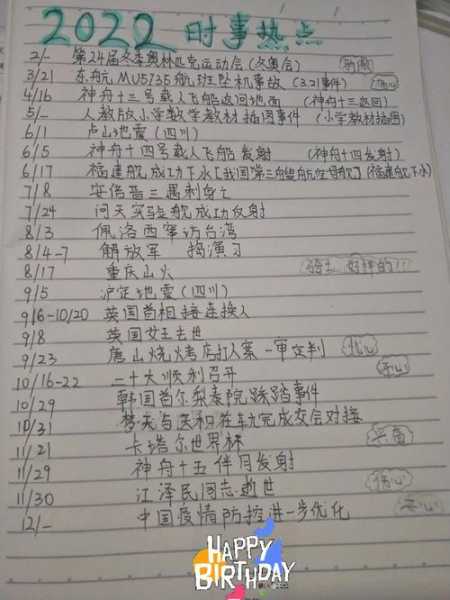 2022 时事热点
2/- 第24届冬季奥林匹克运动会(冬奥会) 骄傲
3/21 东航MU5735航班坠机事故(3.21事件) 伤心
4/16 神舟十三号载人飞船返回地面 (神舟十三返回)
5/- 人教版小学数学教材插图事件 (小学教材插图)
6/1 卢山地震(四川)
6/5 神舟十四号载人飞船发射 (神舟十四发射)
6/17 福建舰成功下水[我国第三艘航空母舰](福建舰下水)
7/8 安倍晋三遇刺身亡
7/24 问天实验舱成功发射
8/3 佩洛西窜访台湾
8/4-7 解放军 演习
8/17 重庆山火 骑士 好样的!!!
9/5 泸定地震(四川)
9/6-10/20 英国首相接连换人
9/8 英国女王去世
9/23 唐山烧烤店打人案一审定判
10/16-22 二十大顺利召开 开心
10/29 韩国首尔梨泰院踩踏事件
10/31 梦天与天和在轨完成交会对接
11/21 卡塔尔世界杯
11/29 神舟十五 发射
11/30 江泽民同志逝世 伤心
12/- 中国疫情防控进一步优化
HAPPY
BIRTHDAY